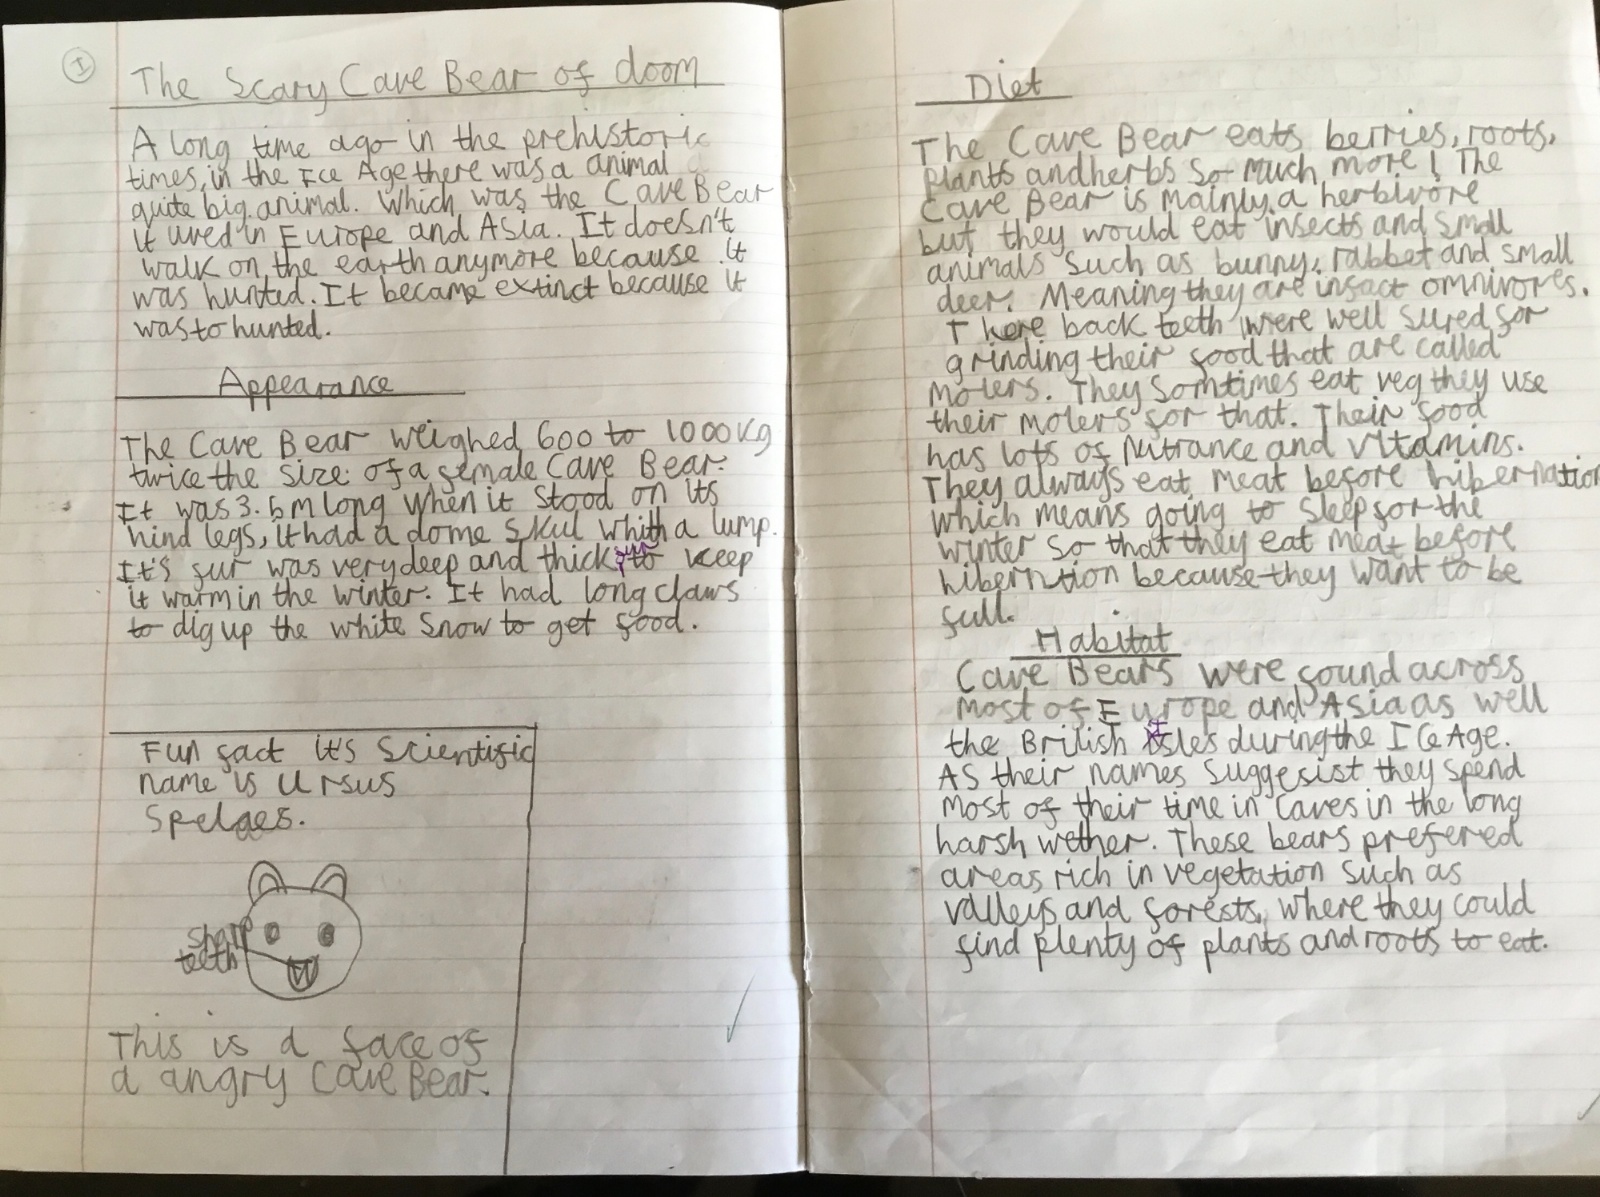 I
The Scary Cave Bear of doom
A long time ago in the prehistoric
times, in the Ice Age there was a animal
quite big animal. Which was the Cave Bear
it lived in Europe and Asia. It doesn't
walk on the earth anymore because it
was hunted. It became extinct because it
was to hunted.
Appearance
The Cave Bear weighed 600 to 1000kg
twice the size of a female Cave Bear.
It was 3.6m long when it stood on its
hind legs, it had a dome skul whith a lump.
It's fur was very deep and thick to keep
it warm in the winter. It had long claws
to dig up the white snow to get food.
Fun fact it's Scientific
name is Ursus
Spelaes.
sharp
teeth
This is a face of
a angry Cave Bear.
Diet
The Cave Bear eats berries, roots,
plants and herbs so much more! The
Cave Bear is mainly a herbivore
but they would eat insects and small
animals such as bunny, rabbet and small
deer. Meaning they are insact omnivores.
There back teeth were well sured for
grinding their food that are called
molers. They Somtimes eat veg they use
their molers for that. Their food
has lots of Nutrance and vitamins.
They always eat meat before hibernation
which means going to sleep for the
winter so that they eat meat before
hiberntion because they want to be
full.
Habitat
Cave Bears were found across
most of Europe and Asia as well
the British Isles during the Ice Age.
As their names suggesist they spend
most of their time in caves in the long
harsh wether. These bears prefered
areas rich in vegetation such as
valleys and forests, where they could
find plenty of plants and roots to eat.